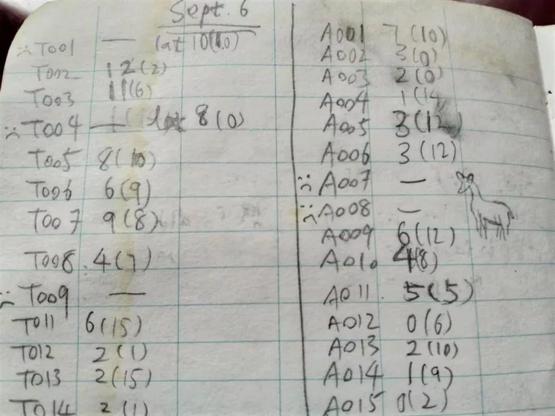 Sept. 6
T001 — (at 10(10)
T002 12(2)
T003 11(6)
T004 — 8(0)
T005 8(10)
T006 6(9)
T007 9(8)
T008 4(7)
T009 —
T011 6(15)
T012 2(1)
T013 2(15)
T014 2(1)
A001 7(10)
A002 3(0)
A003 2(0)
A004 1(14
A005 3(12)
A006 3(12)
A007 —
A008 —
A009 6(12)
A010 4(8)
A011 5(5)
A012 0(6)
A013 2(10)
A014 1(9)
A015 0(2)